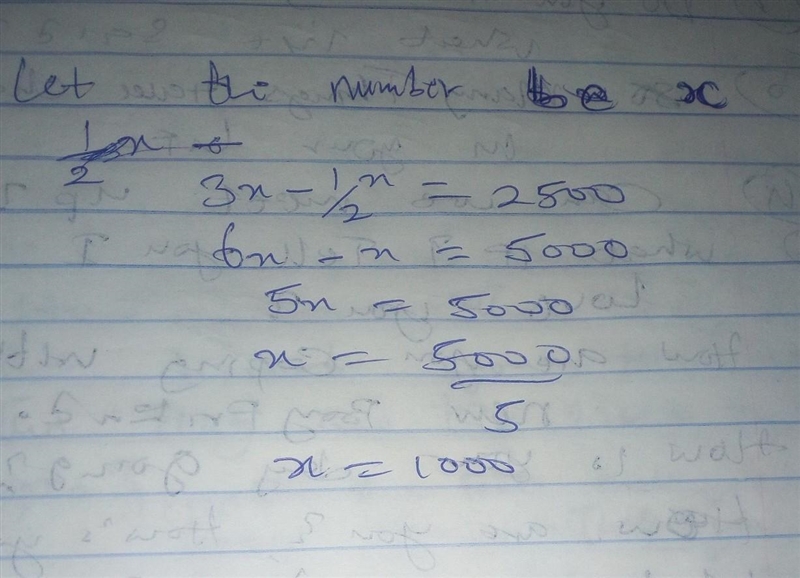 Let the number be x
3x - 1/2 x = 2500
6x - x = 5000
5x = 5000
x = 5000
5
x = 1000